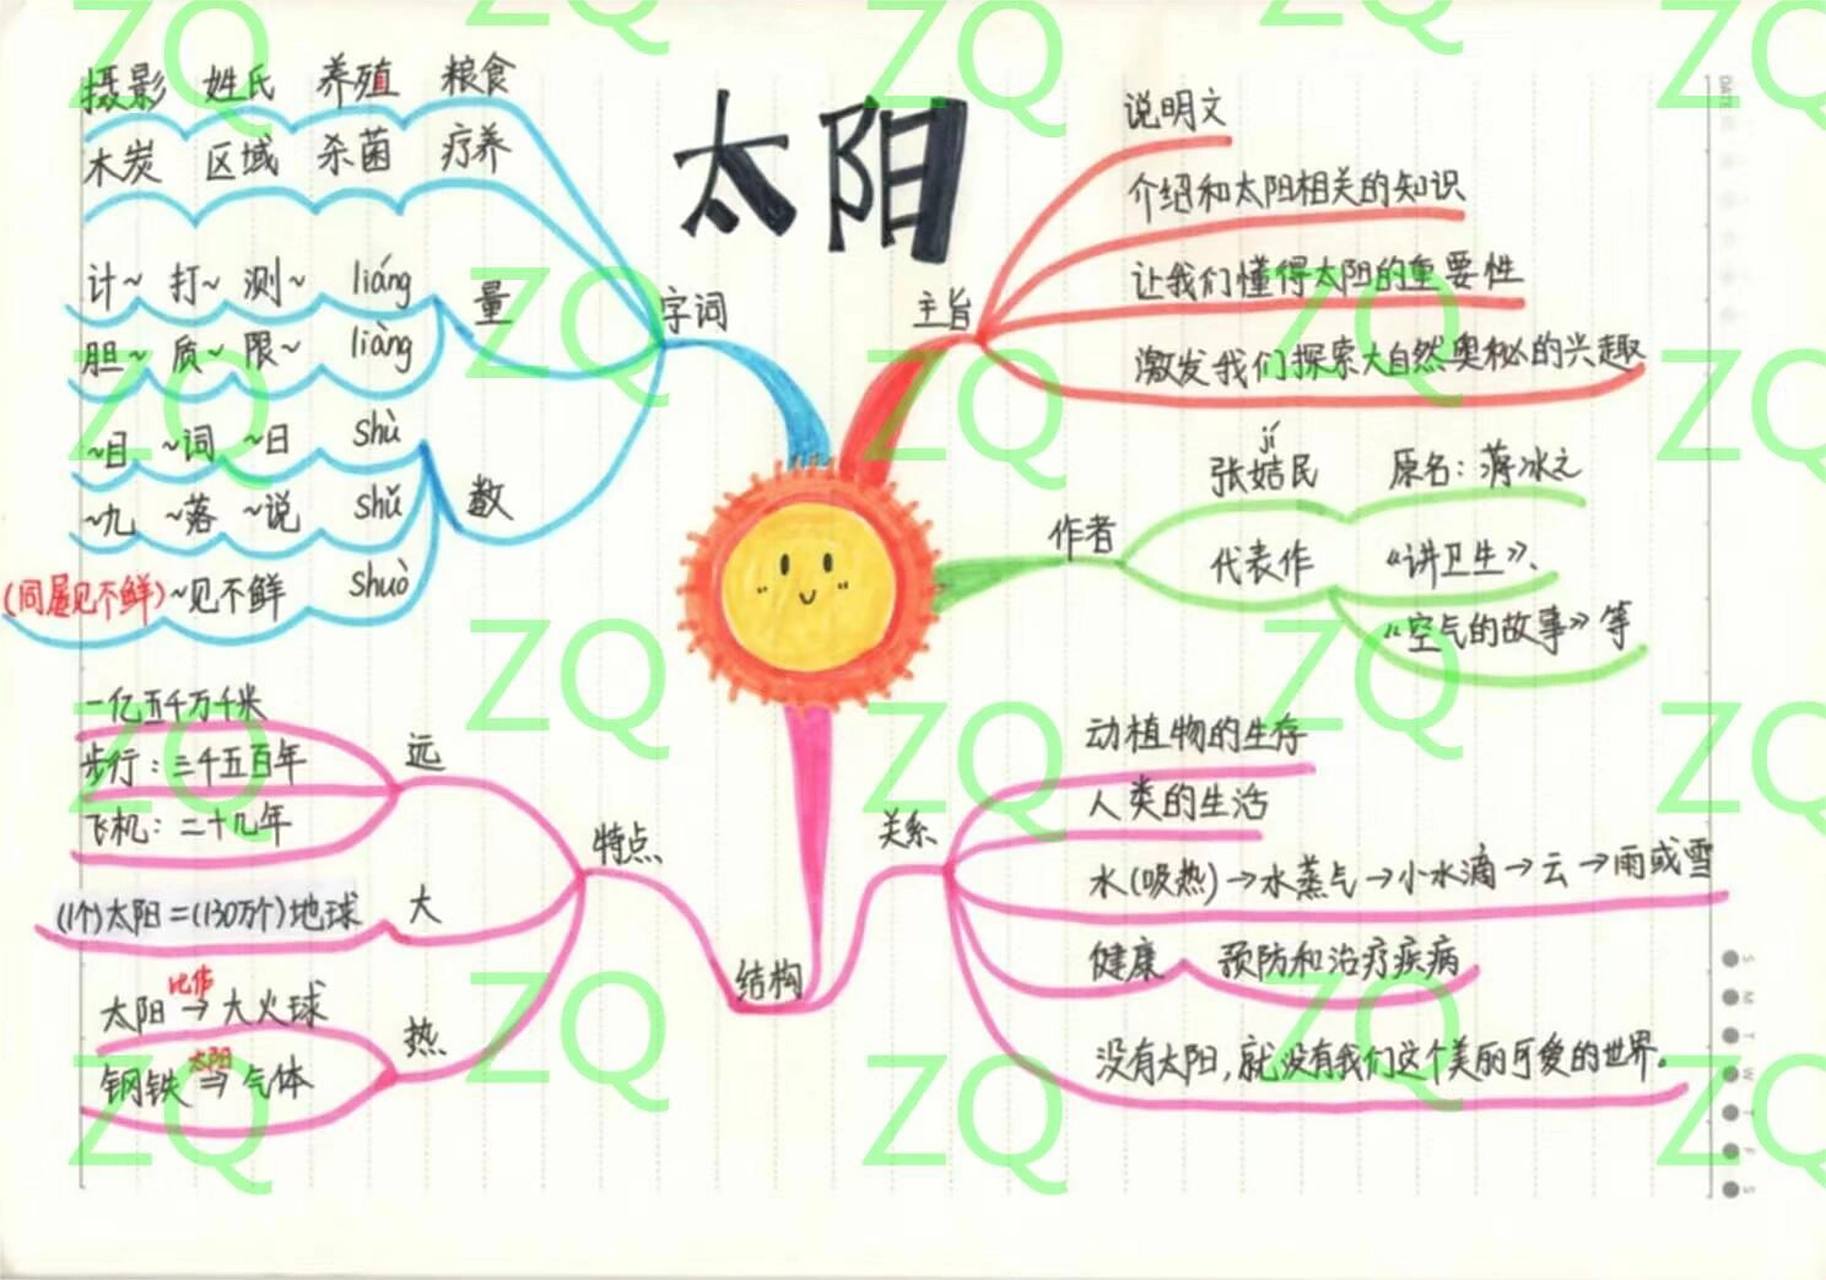 太阳
摄影 姓氏 养殖 粮食
木炭 区域 杀菌 疗养
计~ 打~ 测~ liáng
胆~ 质~ 限~ liàng
量
字词
~目 ~词 ~日 shù
~九 ~落 ~说 shǔ
(同屡见不鲜)~见不鲜 shuò
数
主旨
说明文
介绍和太阳相关的知识
让我们懂得太阳的重要性
激发我们探索大自然奥秘的兴趣
作者
jí
张姞民 原名：蒋冰之
代表作 《讲卫生》、
《空气的故事》等
一亿五千万千米
步行：三千五百年
飞机：二十几年
远
特点
(1个)太阳=(130万个)地球
大
比作
太阳→大火球
太阳
钢铁⇒气体
热
结构
关系
动植物的生存
人类的生活
水(吸热)→水蒸气→小水滴→云→雨或雪
健康 预防和治疗疾病
没有太阳,就没有我们这个美丽可爱的世界。
DATE
S
M
T
W
T
F
S
ZQ